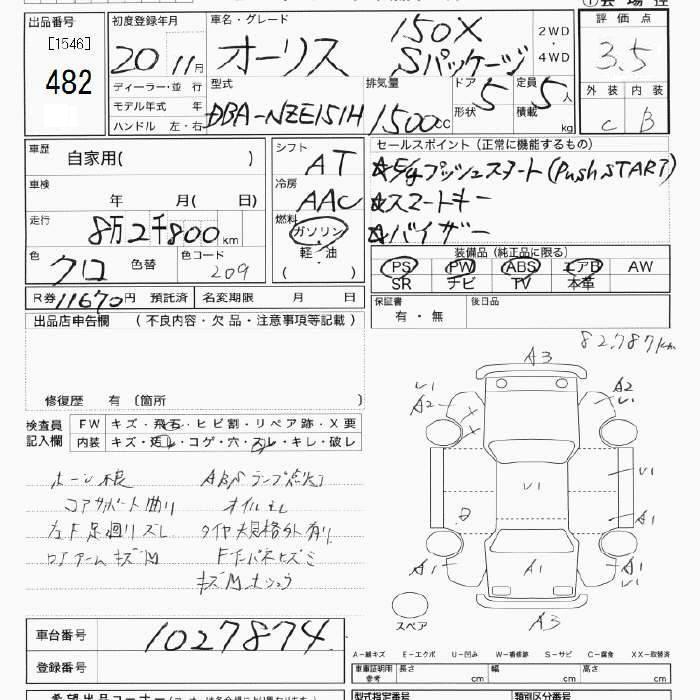 出品番号
[1546]
482
初度登録年月
20 11月
車名・グレード
オーリス
150X
Sパッケージ
2WD
・
4WD
評価点
3.5
外装 内装
C B
ディーラー・並行
モデル年式 年
ハンドル 左・右
型式
DBA-NZE151H
排気量
1500cc
ドア
5
形状
定員
5人
積載
kg
車歴
自家用( )
車検
年 月( 日)
走行
8万2千800km
色
クロ
色替
色コード
209
R券 11670円 預託済
名変期限 月 日
シフト
AT
冷房
AAC
燃料
ガソリン
軽・油
( )
セールスポイント(正常に機能するもの)
☆E/gプッシュスタート(Push START)
☆スマートキー
☆バイザー
装備品(純正品に限る)
PS PW ABS エアB AW
SR ナビ TV 本革
保証書
有・無
後日品
出品店申告欄 (不良内容・欠品・注意事項等記載)
修復歴 有 〔箇所 〕
82,787km
検査員
記入欄
FW キズ・飛石・ヒビ割・リペア跡・X要
内装 キズ・汚レ・コゲ・穴・スレ・キレ・破レ
ABSランプ点灯
コアサポート曲り
オイルモレ
左F足廻りズレ
タイヤ大規格外有り
A3
V1
A2
A2
V1
V1
V1
A1
A1
A1
A1
V1
A3
スペア
車台番号
1027874
登録番号
A-線キズ E-エクボ U-凹み W-補修跡 S-サビ C-腐食 XX-取替済
車庫証明用
参考
長さ cm 幅 cm 高さ cm
型式指定番号
類別区分番号